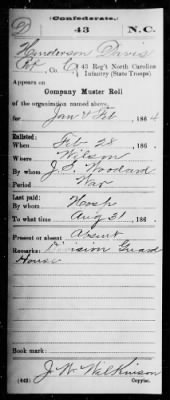 Confederate.
43 N.C.
Henderson Davis
Pvt, Co. C, 43 Reg't North Carolina
Infantry (State Troops)
Appears on
Company Muster Roll
of the organization named above,
for Jan & Feb, 1864
Enlisted:
When Feb 28, 186 .
Where Wilson
By whom J. S. Woodard
Period War
Last paid:
By whom Hoosh
To what time Aug 31, 186 .
Present or absent Absent
Remarks: Division Guard
House
Book mark:
J. W. Wilkinson
(642) Copyist.